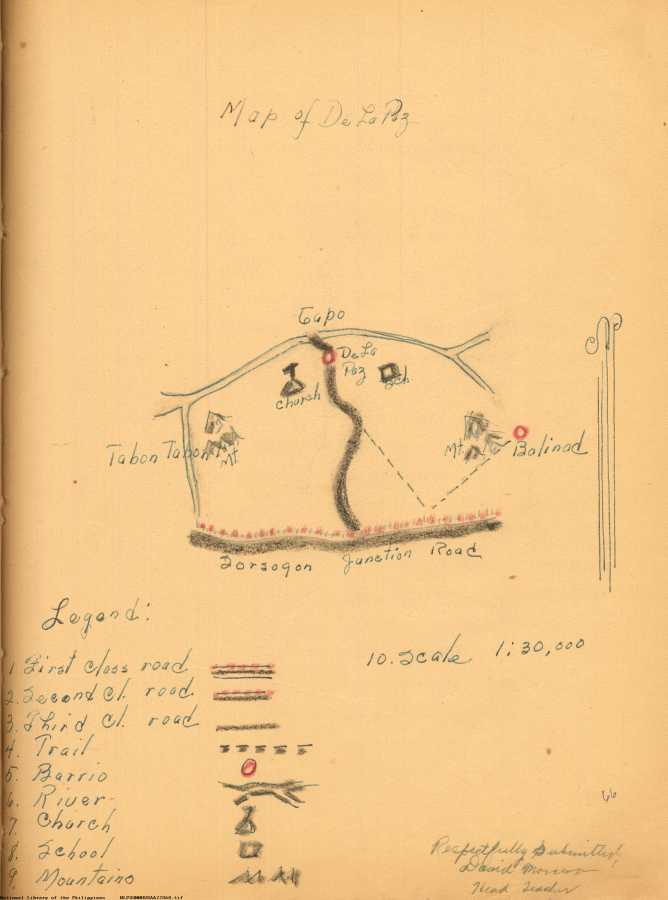 Map of De La Paz
Gapo
De La
Paz
Church
Sch.
Tabon Tabon
Mt
Mt.
Balinad
Sorsogon Junction Road
Legend:
1 First class road
2. Second Cl. road
3. Third Cl. road
4. Trail
5. Barrio
6. River
7. Church
8. School
9. Mountains
10. Scale 1:30,000
66
Respectfully Submitted:
David
Head Teacher
National Library of the Philippines